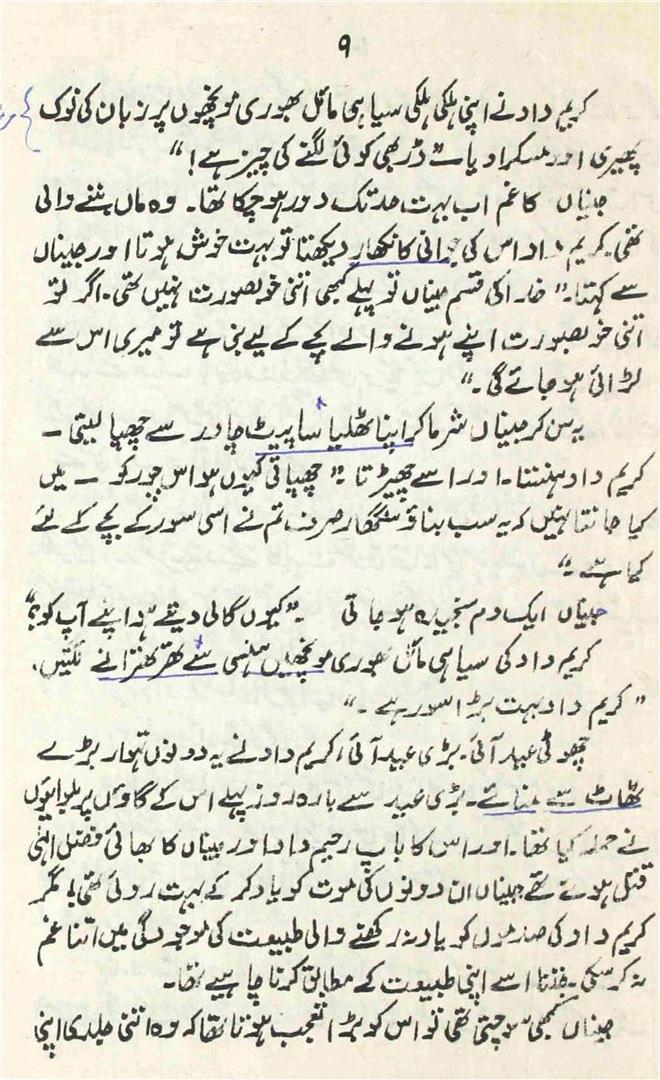 ۹
کریم داد نے اپنی ہلکی ہلکی سیاہی مائل بھوری مونچھوں پر زبان کی نوک
پھیری اور مسکرا دیا۔ ” ڈر بھی کوئی لگنے کی چیز ہے! “
جیناں کا غم اب بہت حد تک دور ہو چکا تھا۔ وہ ماں بننے والی
تھی۔ کریم داد اس کی جوانی کا نکھار دیکھتا تو بہت خوش ہوتا اور جیناں
سے کہتا۔ ” خدا کی قسم جیناں تو پہلے کبھی اتنی خوبصورت نہیں تھی۔ اگر تو
اتنی خوبصورت اپنے ہونے والے بچے کے لیے بنی ہے تو میری اس سے
لڑائی ہو جائے گی۔ “
یہ سن کر جیناں شرما کر اپنا ٹھلیا سا پیٹ چادر سے چھپا لیتی ۔
کریم داد ہنستا۔ اور اسے چھیڑتا ” چھپاتی کیوں ہو اس چور کو ۔ میں
کیا جانتا نہیں کہ یہ سب بناؤ سنگھار صرف تم نے اسی سور کے بچے کے لئے
کیا ہے ۔ “
جیناں ایک دم سنجیدہ ہو جاتی ۔ ” کیوں گالی دیتے ہو اپنے آپ کو؟ “
کریم داد کی سیاہی مائل بھوری مونچھیں ہنسی سے تھرتھرانے لگتیں۔
” کریم داد بہت بڑا سور ہے ۔ “
چھوٹی عید آئی۔ بڑی عید آئی، کریم داد نے یہ دونوں تہوار بڑے
ٹھاٹ سے منائے۔ بڑی عید سے بارہ روز پہلے اس کے گاؤں پر بلوائیوں
نے حملہ کیا تھا۔ اور اس کا باپ رحیم داد اور جیناں کا بھائی فضل الہٰی
قتل ہوئے تھے جیناں ان دونوں کی موت کو یاد کر کے بہت روئی تھی! مگر
کریم داد کی صدموں کو یاد نہ رکھنے والی طبیعت کی موجودگی میں اتنا غم
نہ کر سکی۔ جتنا اسے اپنی طبیعت کے مطابق کرنا چاہیے تھا۔
جیناں کبھی سوچتی تھی تو اس کو بڑا تعجب ہوتا تھا کہ وہ اتنی جلدی اپنی